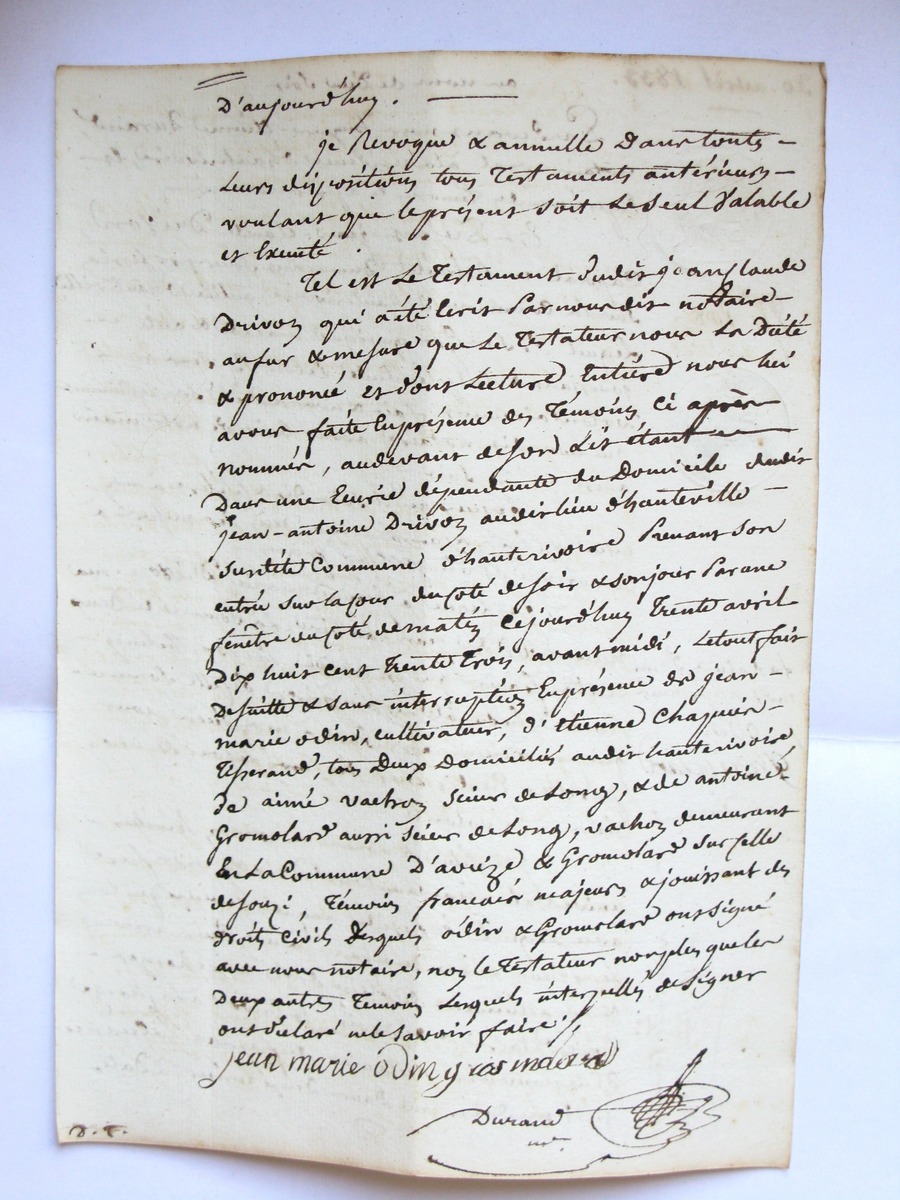 D'aujourd'huy.
je Revoque & annulle Dans touts
Leurs dispositions tous Testaments antérieurs
voulant que le présent soit Le seul Valable
et Exeuté.
Tel est Le Testament dudit jean Claude
Drivon qui a été Ecrit Par nous dit nottaire
au fur & mesure que Le Testateur nous La Dicté
& prononcé et dont Lecture Entiere nous lui
avons faite En présence des Témoins Ci après
nommés, audevant de son Lit étant
Dans une Ecurie dépendante du Domicile dudit
jean-antoine Drivon audit lieu d'hauteville
susdite Commune d'hauterivoire Prenant son
entrée sur la cour du côté de soir & son jour Par une
fenêtre du côté de matin Cejourd'huy Trente avril
Dix huit cent Trente Trois, avant midi, Le tout fait
De suitte & sans interruption En présence de jean-
marie odin, cultivateur, d'Etienne Chapuis
Tisserand, tous Deux Domiciliés audit hauterivoire,
De aimé vachon scieur de Long, & de antoine
Gromolard aussi scieur de Long, vachon demeurant
En La Commune D'aveize & Gromolard sur celle
de souzi, Témoins francais majeurs & jouissant des
droits Civils Desquels odin & Gromolard ont signé
avec nous notaire, non le Testateur non plus que les
Deux autres Temoins Lesquels interpellés de signer
ont déclaré ne le savoir faire./.
jean marie odin gromolard
Durand
nre